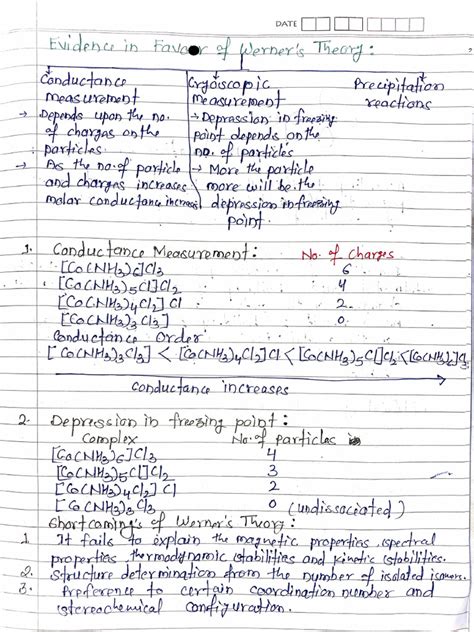 DATE
Evidence in Favor of Werner's Theory:
Conductance measurement
→ Depends upon the no. of charges on the particles.
→ As the no. of particle and charges increases molar conductance increases
Cryoiscopic Measurement
→ Depression in freezing point depends on the no. of particles
→ More the particle more will be the depression in freezing point.
Precipitation reactions
1. Conductance Measurement: No. of Charges
[Co(NH3)6]Cl3 6
[Co(NH3)5Cl]Cl2 4
[Co(NH3)4Cl2]Cl 2
[Co(NH3)3Cl3] 0
Conductance Order
[Co(NH3)3Cl3] < [Co(NH3)4Cl2]Cl < [Co(NH3)5Cl]Cl2 < [Co(NH3)6]Cl3
conductance increases
2. Depression in freezing point:
Complex No. of particles
[Co(NH3)6]Cl3 4
[Co(NH3)5Cl]Cl2 3
[Co(NH3)4Cl2]Cl 2
[Co(NH3)3Cl3 0 (undissociated)
Shortcoming's of Werner's Theory:
1. It fails to explain the magnetic properties, spectral
properties, thermodynamic stabilities and kinetic stabilities.
2. Structure determination from the number of isolated isomers.
3. Preference to certain coordination number and
stereochemical configuration.